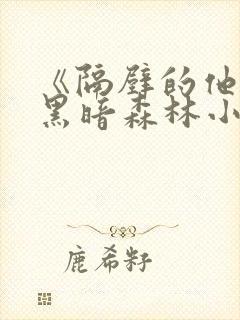 《隔壁的他
黑暗森林小
鹿希籽